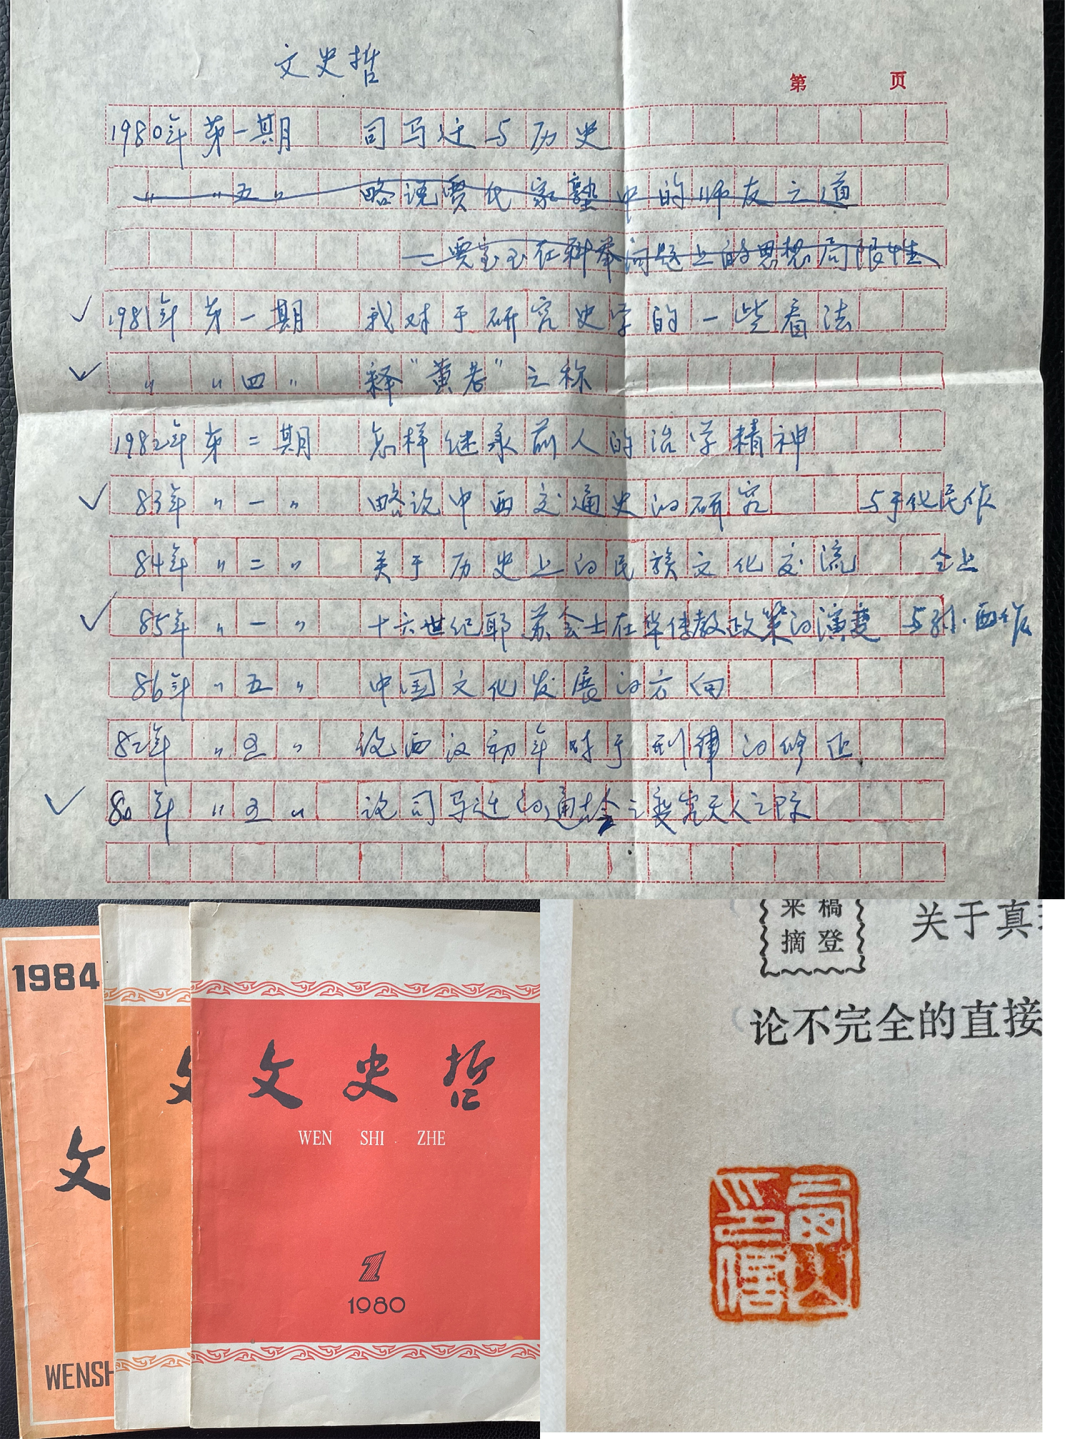 文史哲
第 页
1980年第一期 司马迁与历史
〃 〃五〃 略说贾氏家塾中的师友之道
—贾宝玉在科举问题上的思想局限性
✓ 1981年第一期 我对于研究史学的一些看法
✓ 〃 〃四〃 释“黄老”之称
1982年第二期 怎样继承前人的治学精神
✓ 83年〃一〃 略论中西交通史的研究 与于化民作
84年〃二〃 关于历史上的民族文化交流 仝上
✓ 85年〃一〃 十六世纪耶苏会士在华传教政策的演变 西作
86年〃五〃 中国文化发展的方向
82年〃五〃 论西汉初年对于刑律的修正
✓ 80年〃五〃 论司马迁的通古今之变究天人之际
1984
文
WENSH
文史哲
WEN SHI ZHE
1
1980
来稿
摘登
关于真
论不完全的直接
山
印信